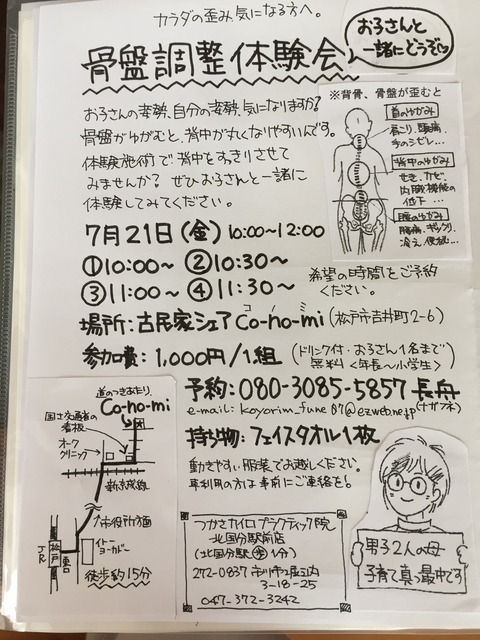 カラダの歪み気になる方へ。
骨盤調整体験会
お子さんと
一緒にどうぞ
お子さんの姿勢、自分の姿勢、気になりますか?
骨盤がゆがむと、背中が丸くなりやすいんです。
体験施術で背中をすっきりさせて
みませんか? ぜひお子さんと一緒に
体験してみてください。
※背骨、骨盤が歪むと
首のゆがみ
肩こり、頭痛、
手のシビレ…
背中のゆがみ
せき、カゼ、
内臓機能の
低下…
腰のゆがみ
腰痛、ギックリ、
冷え、便秘…
7月21日(金) 10:00~12:00
①10:00~ ②10:30~
③11:00~ ④11:30~
希望の時間をご予約
ください。
場所:古民家シェア Co-no-mi (松戸市吉井町2-6)
コノミ
参加費:1,000円/1組 (ドリンク付・お子さん1名まで
無料<年長~小学生>)
予約:080-3085-5857 長舟
e-mail: koyorim_fune87@ezweb.ne.jp (ナガフネ)
持ち物:フェイスタオル1枚
動きやすい服装でお越しください。
車利用の方は事前にご連絡を!
道のつきあたり。
Co-no-mi
国士交通省の
看板
オーク
クリニック
新京成線
市役所方面
イトー
ヨーカドー
JR
松戸
東口
徒歩約15分
つかさカイロプラクティック院
北国分駅前店
(北国分駅より1分)
272-0837 市川市堀之内
3-18-25
047-372-3242
男子2人の母
子育て真っ最中です